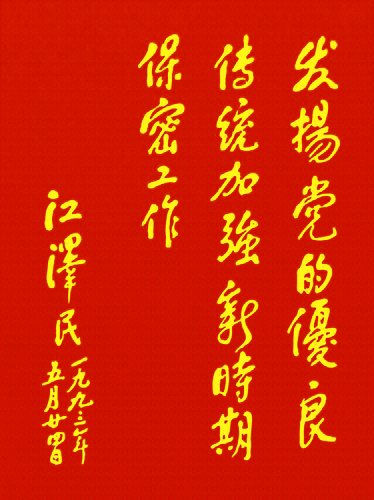 发揚党的優良
传统加強新時期
保密工作
江澤民
一九九三年
五月廿四日